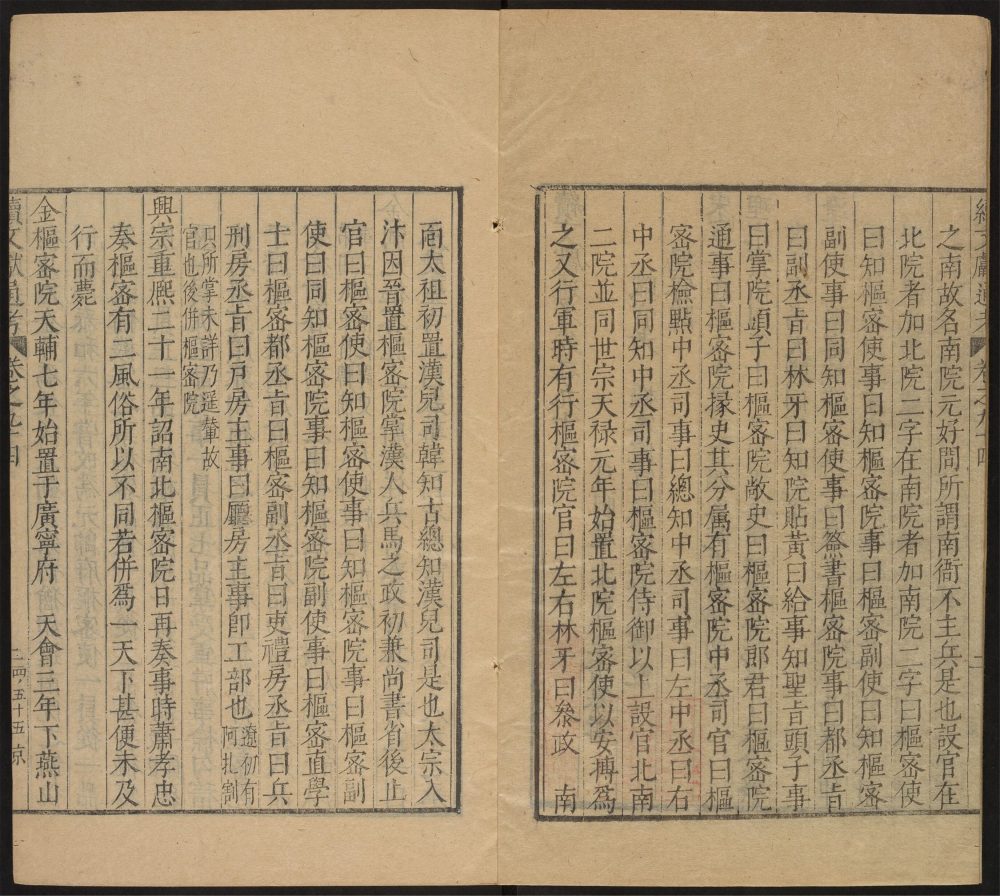 續文獻通考 卷之九十四
之南故名南院元好問所謂南衙不主兵是也設官在
北院者加北院二字在南院者加南院二字曰樞密使
曰知樞密使事曰知樞密院事曰樞密副使曰知樞密
副使事曰同知樞密使事曰簽書樞密院事曰都丞旨
曰副丞旨曰林牙曰知院貼黃曰給事知聖旨頭子事
曰掌院頭子曰樞密院敞史曰樞密院郎君曰樞密院
通事曰樞密院掾史其分屬有樞密院中丞司官曰樞
密院檢點中丞司事曰總知中丞司事曰左中丞曰右
中丞曰同知中丞司事曰樞密院侍御以上設官北南
二院並同世宗天祿元年始置北院樞密使以安摶爲
之又行軍時有行樞密院官曰左右林牙曰叅政 南
面太祖初置漢兒司韓知古總知漢兒司是也太宗入
汴因晉置樞密院掌漢人兵馬之政初兼尚書省後止
官曰樞密使曰知樞密使事曰知樞密院事曰樞密副
使曰同知樞密院事曰知樞密院副使事曰樞密直學
士曰樞密都丞旨曰樞密副丞旨曰吏禮房丞旨曰兵
刑房丞旨曰戶房主事曰廳房主事卽工部也遼初有
阿扎割
只所掌未詳乃遥輦故
官也後併樞密院
興宗重熈二十一年詔南北樞密院日再奏事時蕭孝忠
奏樞密有二風俗所以不同若併爲一天下甚便未及
行而薨
金樞密院天輔七年始置于廣寧府 天會三年下燕山
續文獻通考 卷之九十四
二四五十五 京